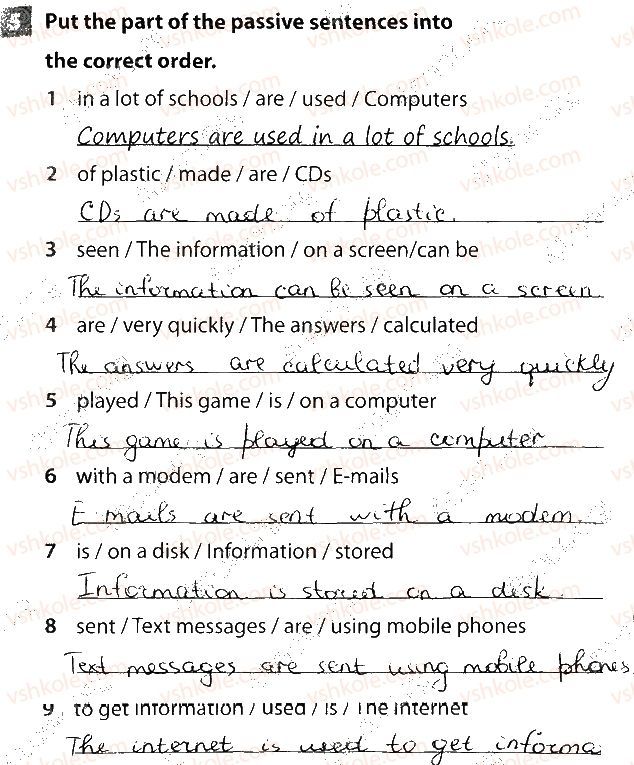 5 Put the part of the passive sentences into
the correct order.
1 in a lot of schools / are / used / Computers
Computers are used in a lot of schools.
2 of plastic / made / are / CDs
CDs are made of plastic.
3 seen / The information / on a screen/can be
The information can be seen on a screen.
4 are / very quickly / The answers / calculated
The answers are calculated very quickly
5 played / This game / is / on a computer
This game is played on a computer
6 with a modem / are / sent / E-mails
E mails are sent with a modem.
7 is / on a disk / Information / stored
Information is stored on a disk.
8 sent / Text messages / are / using mobile phones
Text messages are sent using mobile phones
9 to get information / used / is / The internet
The internet is used to get informa